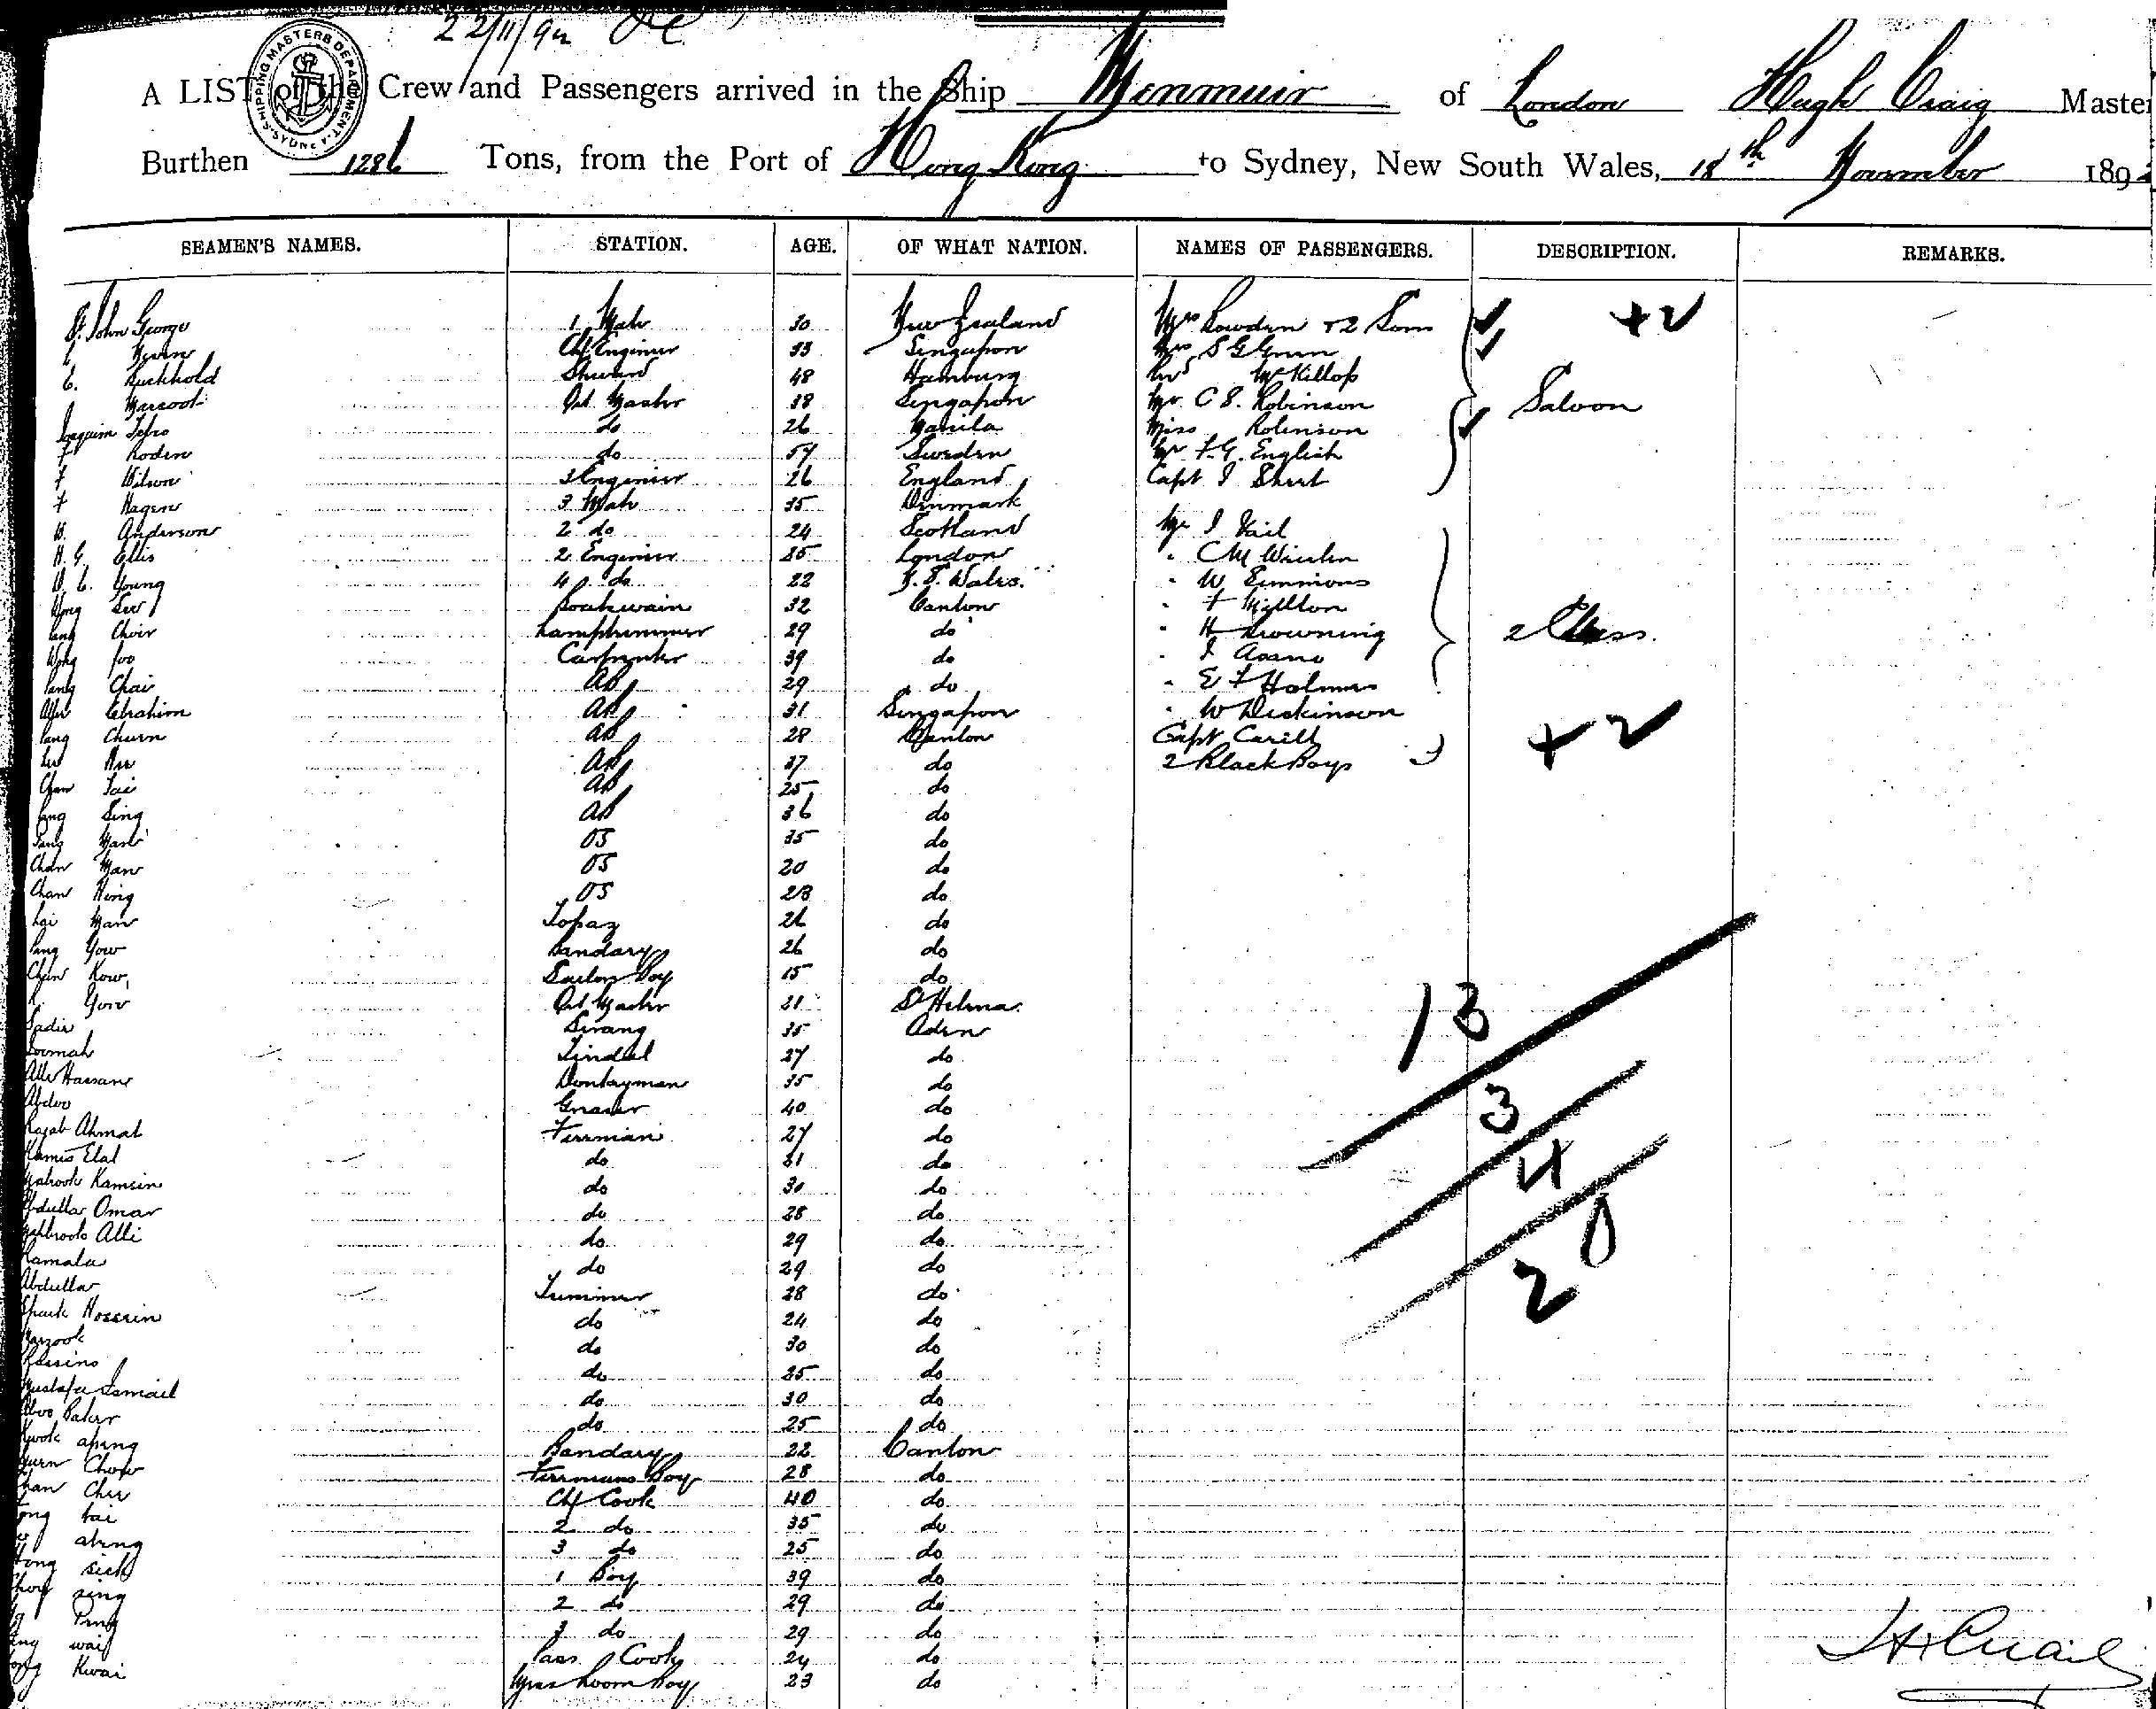 22/11/92
SHIPPING MASTERS DEPARTMENT. SYDNEY.
A LIST of the Crew and Passengers arrived in the Ship Menmuir of London Hugh Craig Master
Burthen 1286 Tons, from the Port of Hong Kong to Sydney, New South Wales, 18th November 189
SEAMEN'S NAMES. STATION. AGE. OF WHAT NATION. NAMES OF PASSENGERS. DESCRIPTION. REMARKS.
St. John George 1 Mate 30 New Zealand Mrs Rowden + 2 Sons +2
Chf Engineer 33 Singapore Mrs S G Green
C. Ruckhold Steward 48 Hamburg McKillop
Qrt. Master 38 Singapore Mr C S. Robinson Saloon
Joaquim do 26 Manila Miss Robinson
Roden do 54 Sweden Mr F. G. English
F Wilson 3 Engineer 26 England Capt J
F Hagen 3 Mate 35 Denmark
Anderson 2 do 24 Scotland Mr J
H. G. Ellis 2 Engineer 35 London " C M
Young 4 do 22 N. S. Wales. " W Simmons
Boatswain 32 Canton " F
Choir Lamptrimmer 29 do " H Browning 2 Class.
Foo Carpenter 39 do "
Chair AB 29 do " E F Holmes
Ebrahim AB 31 Singapore " W Dickinson
Churn AB 28 Canton Capt +2
AB 37 do 2 Black Boys
Chan Tai AB 25 do
Sing AB 36 do
OS 35 do
Chan Man OS 20 do
Chan Hing OS 23 do
Lai Man Topaz 26 do
Yow Bandary 26 do
Kow Sailors Boy 15 do
Qrt. Master 21 St Helena. 13
Sadie Serang 35 Aden
Tindal 27 do
Alli Hassan Donkeyman 35 do
Abdoo Greaser 40 do 3
Rajab Ahmat Fireman 27 do
Elal do 31 do 4
Mabrook Kamsin do 30 do
Abdullar Omar do 28 do
Alli do 29 do 0
Ramala do 29 do
Abdullar Trimmer 28 do 2
Hossein do 24 do
Marzook do 30 do
do 25 do
Mustafa Ismail do 30 do
Aboo Baker do 25 do
Bandary 22 Canton
Chow Firemans Boy 28 do
Chf Cook 40 do
tai 2 do 35 do
3 do 25 do
1 Boy 39 do
sing 2 do 29 do
Ping 3 do 29 do
wai Pass. Cook 24 do
Kwai Mess Room Boy 23 do